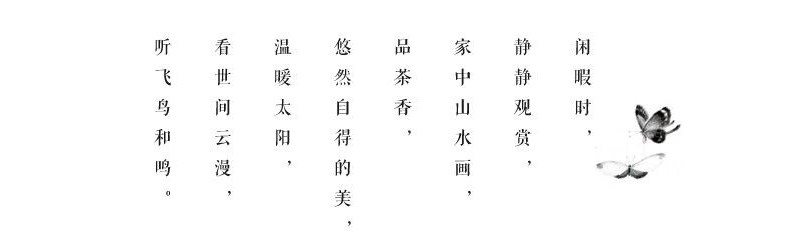 闲暇时，
静静观赏，
家中山水画，
品茶香，
悠然自得的美，
温暖太阳，
看世问云漫，
听飞鸟和鸣。